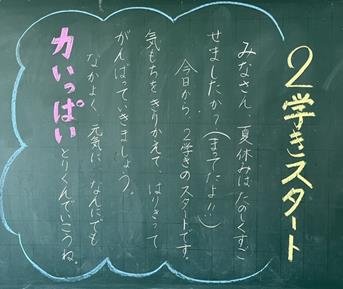 2学きスタート
みなさん、夏休みはたのしくすご
せましたか？(まってたよ!!)
今日から、2学きのスタートです。
気もちをきりかえて、はりきって
がんばっていきましょう。
なかよく、元気に、なんにでも
力いっぱいとりくんでいこうね。